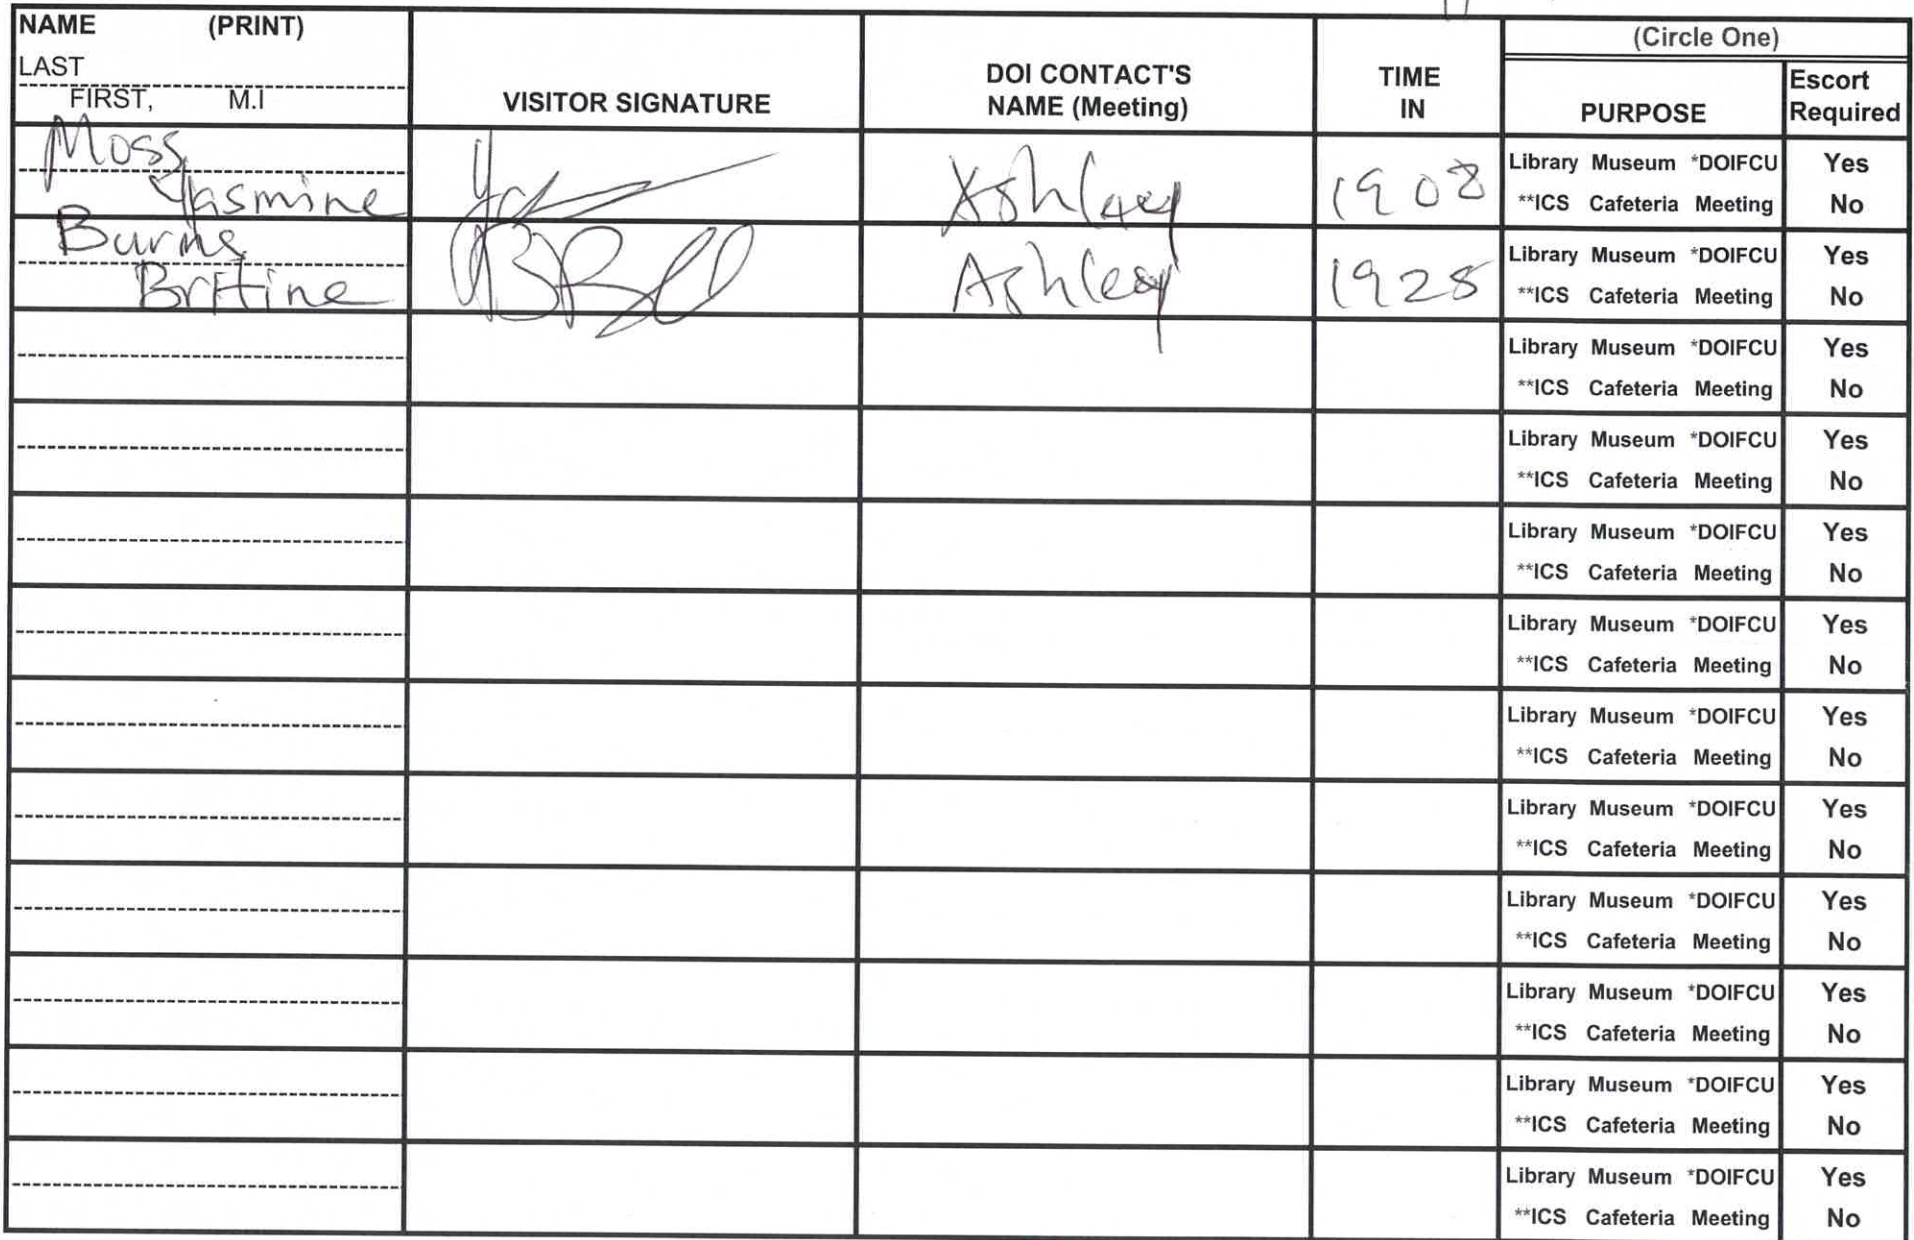 NAME (PRINT)
LAST
FIRST, M.I
VISITOR SIGNATURE
DOI CONTACT'S
NAME (Meeting)
TIME
IN
(Circle One)
PURPOSE
Escort
Required
Moss
Yasmine
Ashley
1908
Library Museum *DOIFCU Yes
**ICS Cafeteria Meeting No
Burns
Brittine
Ashley
1925
Library Museum *DOIFCU Yes
**ICS Cafeteria Meeting No
Library Museum *DOIFCU Yes
**ICS Cafeteria Meeting No
Library Museum *DOIFCU Yes
**ICS Cafeteria Meeting No
Library Museum *DOIFCU Yes
**ICS Cafeteria Meeting No
Library Museum *DOIFCU Yes
**ICS Cafeteria Meeting No
Library Museum *DOIFCU Yes
**ICS Cafeteria Meeting No
Library Museum *DOIFCU Yes
**ICS Cafeteria Meeting No
Library Museum *DOIFCU Yes
**ICS Cafeteria Meeting No
Library Museum *DOIFCU Yes
**ICS Cafeteria Meeting No
Library Museum *DOIFCU Yes
**ICS Cafeteria Meeting No
Library Museum *DOIFCU Yes
**ICS Cafeteria Meeting No